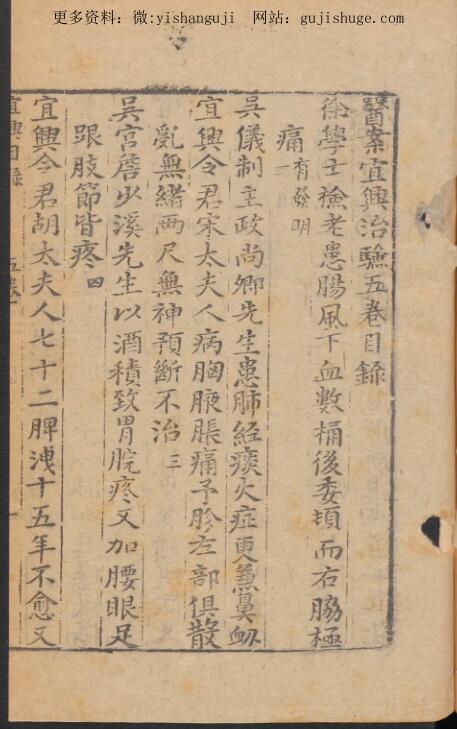 更多资料：微:yishanguji　网站：gujishuge.com
醫案宜興治驗五卷目錄
徐學士檢老患腸風下血數桶後委頓而右脇極
痛一有發明
吳儀制主政尚卿先生患肺經痰火症更兼鼻衂
宜興令君宋太夫人病胸腋脹痛予胗左部俱散
亂無緒两尺無神預斷不治三
吳宮詹少溪先生以酒積致胃脘疼又加腰眼足
跟肢節皆疼四
宜興令君胡太夫人七十二脾洩十五年不愈又
宜興目錄　五卷　一